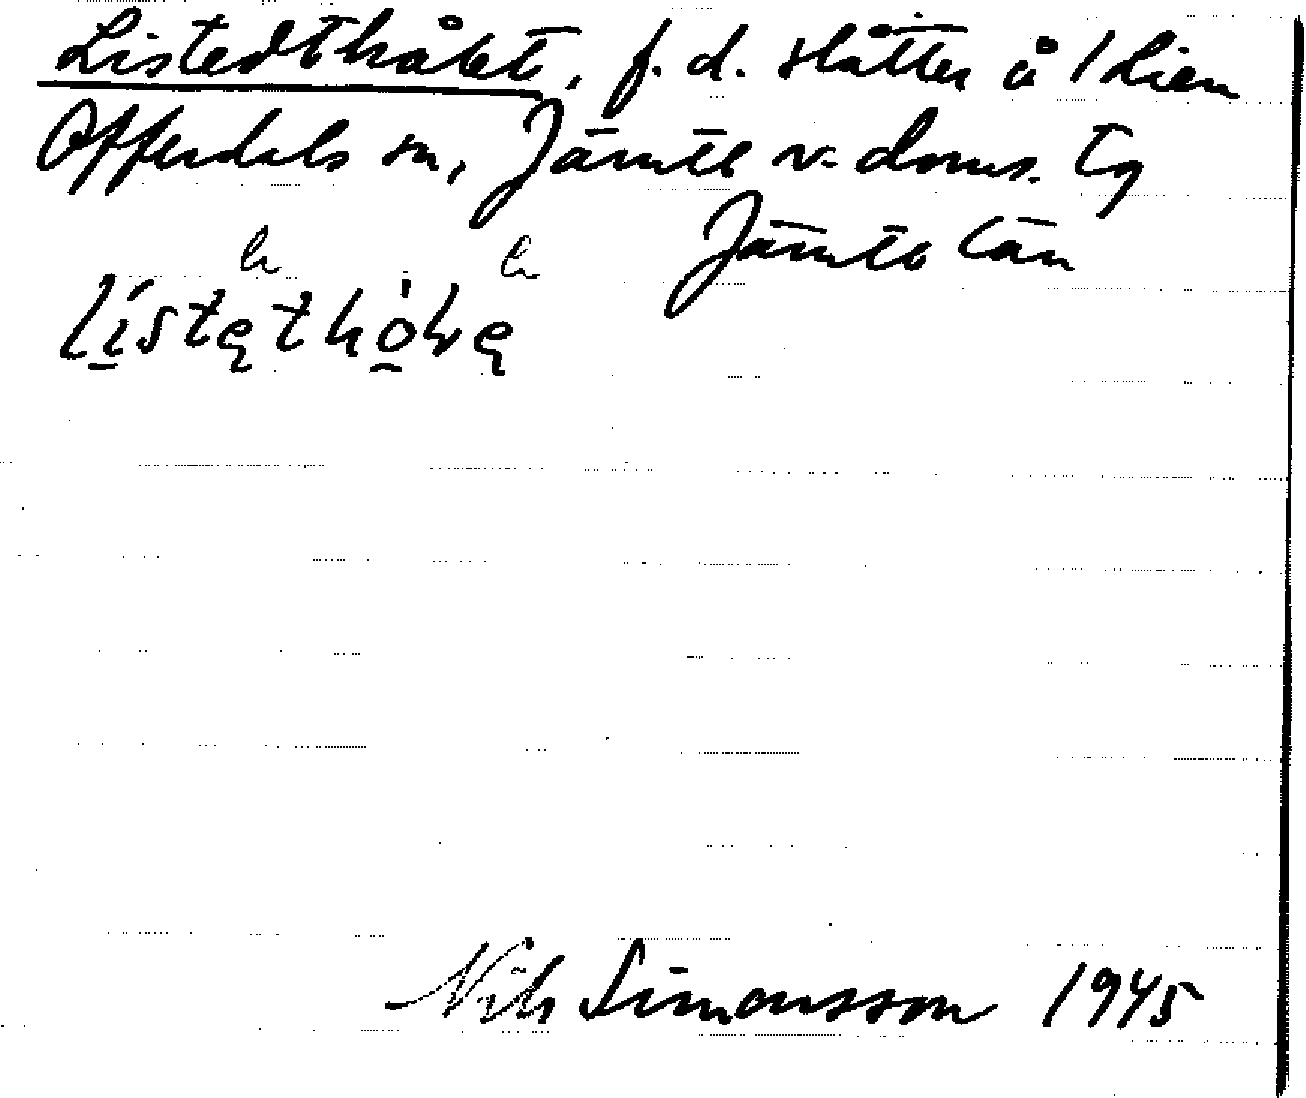 Listedthåket, f.d. slåtter å 1 Lien
Offerdals sn, Jämtl v. doms. tg
Jämtl. län
Nils Simonsson 1945